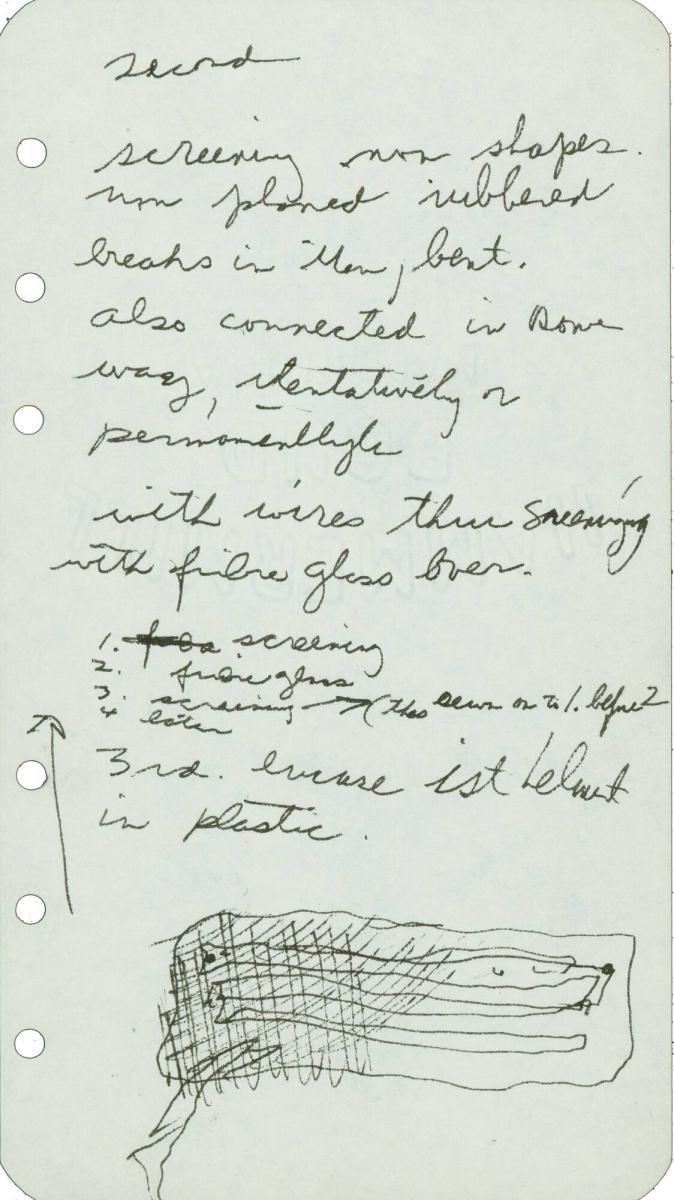 second
screening non shapes.
non planed rubbered
breaks in them, bent.
also connected in some
way, tentatively or
permanently
with wires thru screening
with fibre glass over.
1. screening
2. fibre glass
3. screening (this sewn on to 1. before 2
4
3rd. encase 1st helmut
in plastic.